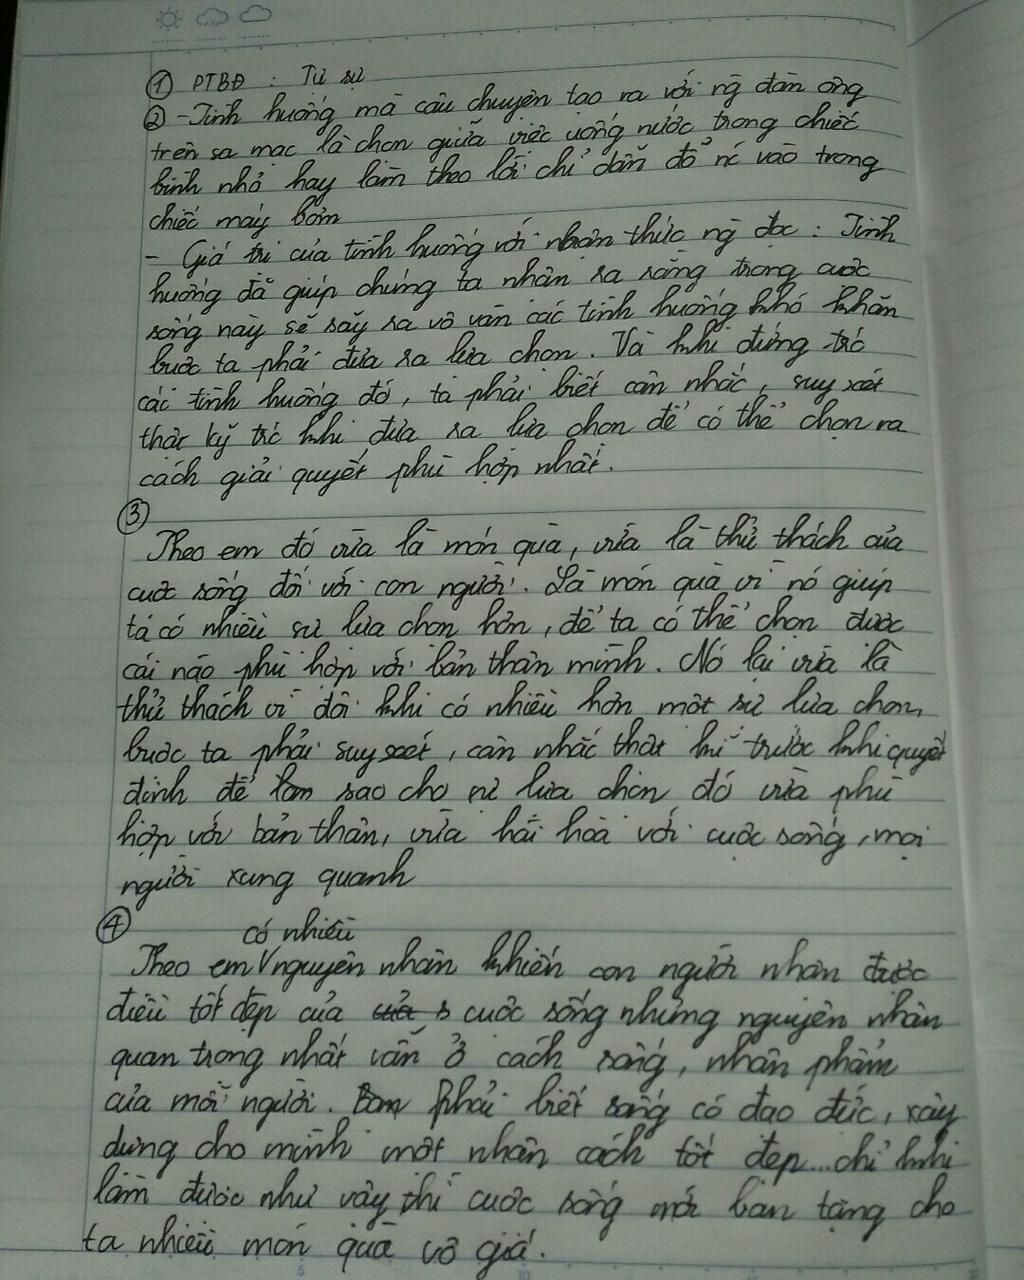 ① PTBĐ : Tự sự
② - Tình huống mà câu chuyện tạo ra với ng đàn ông
trên sa mạc là chọn giữa việc uống nước trong chiếc
bình nhỏ hay làm theo lời chỉ dẫn đổ nc vào trong
chiếc máy bơm
- Giá trị của tình huống với nhận thức ng đọc : Tình
huống đã giúp chúng ta nhận ra rằng trong cuộc
sống này sẽ sảy ra vô vàn các tình huống khó khăn
buộc ta phải đưa ra lựa chọn. Và khi đứng trc
các tình huống đó, ta phải biết cân nhắc, suy xét
thật kỹ trc khi đưa ra lựa chọn để có thể chọn ra
cách giải quyết phù hợp nhất.
③
Theo em đó vừa là món quà, vừa là thử thách của
cuộc sống đối với con người. Là món quà vì nó giúp
ta có nhiều sự lựa chọn hơn, để ta có thể chọn được
cái nào phù hợp với bản thân mình. Nó lại vừa là
thử thách vì đôi khi có nhiều hơn một sự lựa chọn,
buộc ta phải suy xét, cân nhắc thật kĩ trước khi quyết
định để làm sao cho sự lựa chọn đó vừa phù
hợp với bản thân, vừa hài hoà với cuộc sống, mọi
người xung quanh
④
có nhiều
Theo em V nguyên nhân khiến con người nhận được
điều tốt đẹp của cuộc sống nhưng nguyên nhân
quan trọng nhất vẫn ở cách sống, nhân phẩm
của mỗi người. Phải biết sống có đạo đức, xây
dựng cho mình một nhân cách tốt đẹp... chỉ khi
làm được như vậy thì cuộc sống mới ban tặng cho
ta nhiều món quà vô giá.